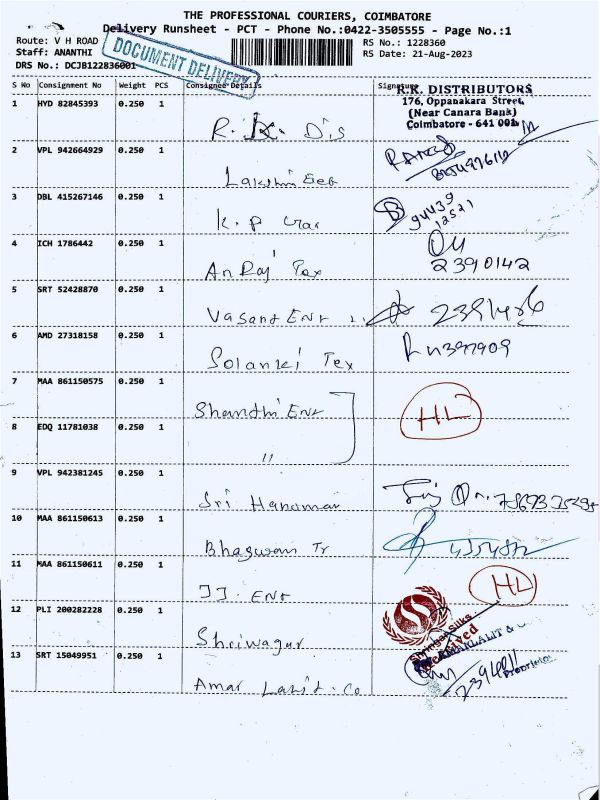 THE PROFESSIONAL COURIERS, COIMBATORE
Delivery Runsheet - PCT - Phone No.:0422-3505555 - Page No.:1
Route: V H ROAD
RS No.: 1228360
Staff: ANANTHI
RS Date: 21-Aug-2023
DRS No.: DCJB122836001
DOCUMENT DELIVERY
S No Consignment No Weight PCS Consignee Details Signature
R.K. DISTRIBUTORS
176, Oppanakara Street,
(Near Canara Bank)
Coimbatore - 641 001
1 HYD 82845393 0.250 1
R. K. Dis
2 VPL 942664929 0.250 1
Lakshmi
3 DBL 415267146 0.250 1
K. P
94439
12521
4 ICH 1786442 0.250 1
An Raj Tex
2390142
5 SRT 52428870 0.250 1
Vasant Ent
6 AMD 27318158 0.250 1
Solanki Tex
7 MAA 861150575 0.250 1
Shanthi Ent
HL
8 EDQ 11781038 0.250 1
"
9 VPL 942381245 0.250 1
Sri Hanuman
10 MAA 861150613 0.250 1
Bhagwan Tr
11 MAA 861150611 0.250 1
JJ. Ent
HL
12 PLI 200282228 0.250 1
Shriwagar
Shringar Silks
Received
13 SRT 15049951 0.250 1
Amar Lalit. Co
Proprietor